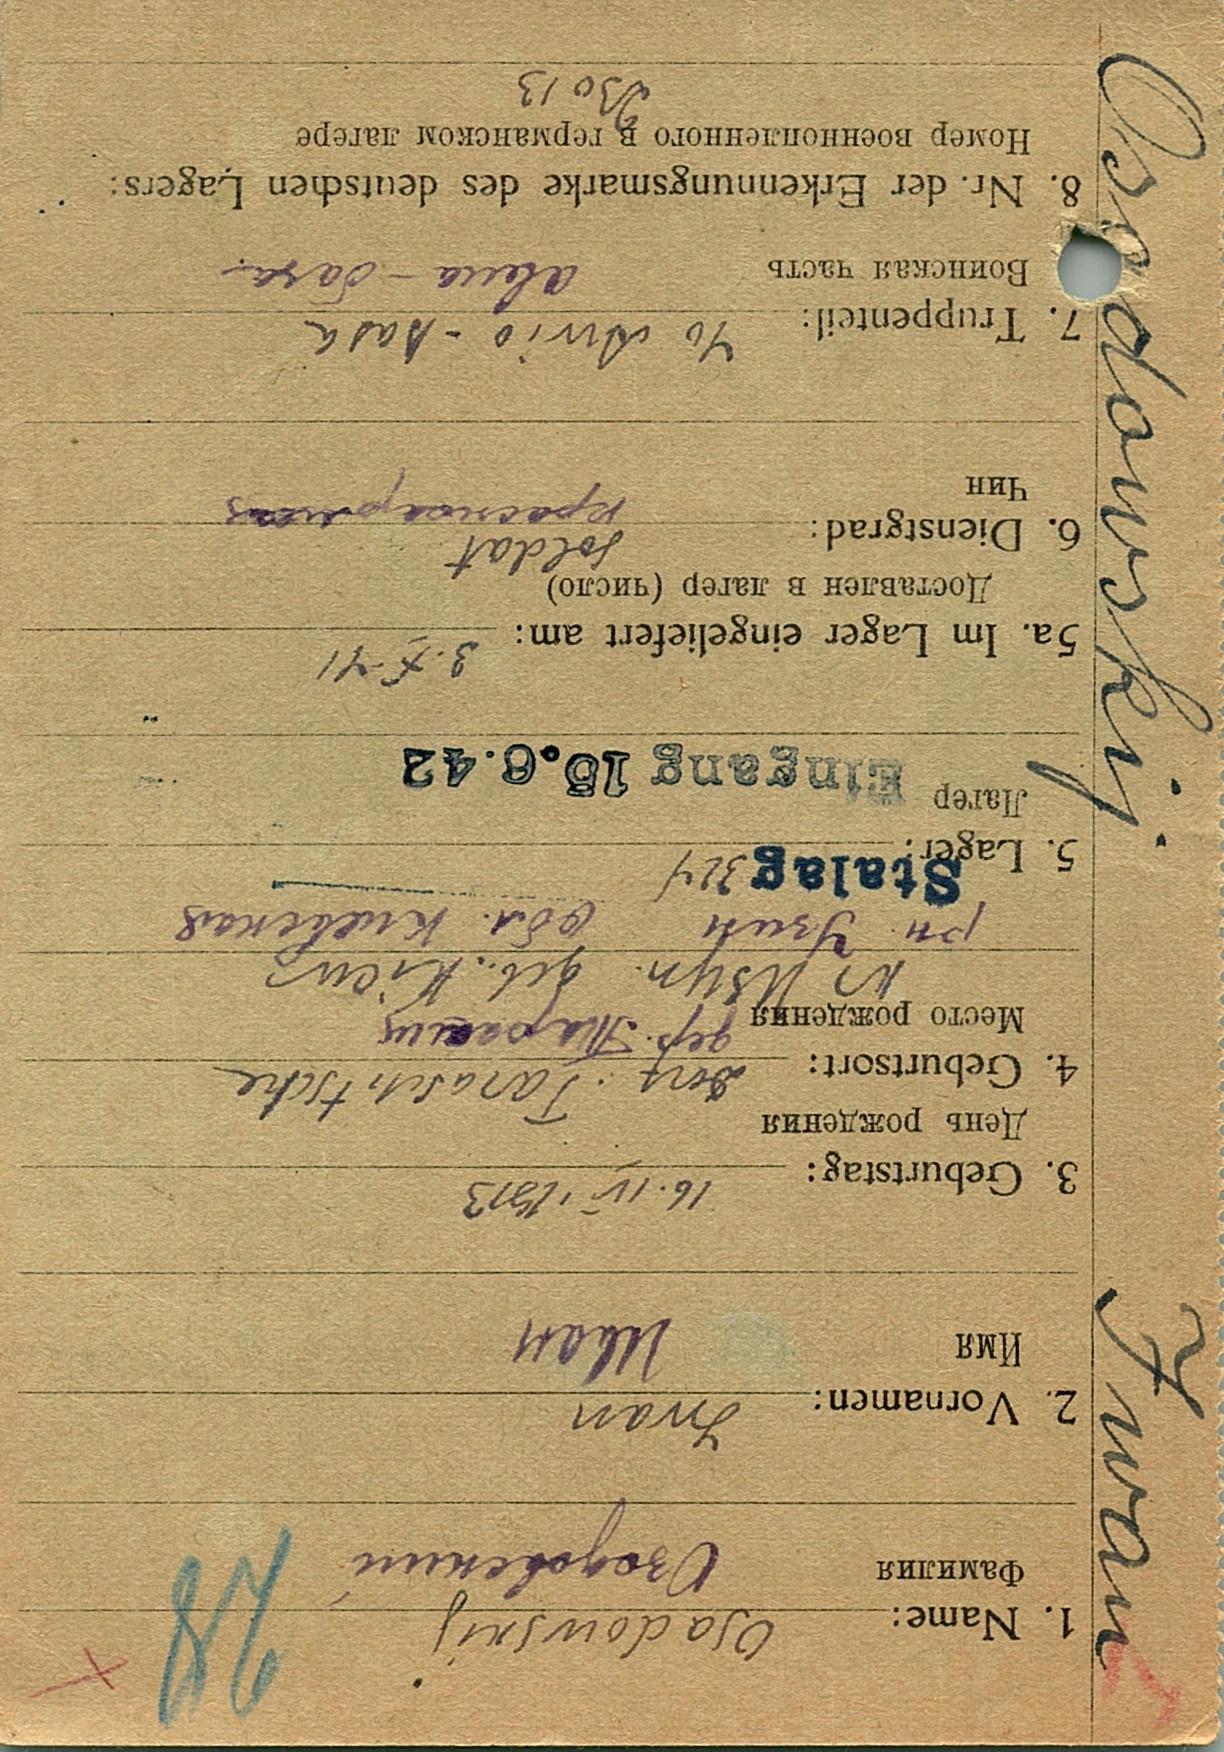 Osadowskij Iwan
28
Osadowskij
1. Name:
Фамилия Озадовский
Iwan
2. Vornamen:
Имя Иван
16.IV.1913
3. Geburtstag:
День рождения
Dorf. Taraschtsche
4. Geburtsort:
Место рождения дер.
geb. Kiew
рн Узин Обл. Киевская
Stalag 324
5. Lager:
Лагер
Eingang 15.6.42
3.X.41
5a. Im Lager eingeliefert am:
Доставлен в лагер (число)
soldat
6. Dienstgrad:
Чин
40 Awio-basa
7. Truppenteil:
Воинская часть авиа-база
8. Nr. der Erkennungsmarke des deutschen Lagers:
Номер военнопленного в германском лагере